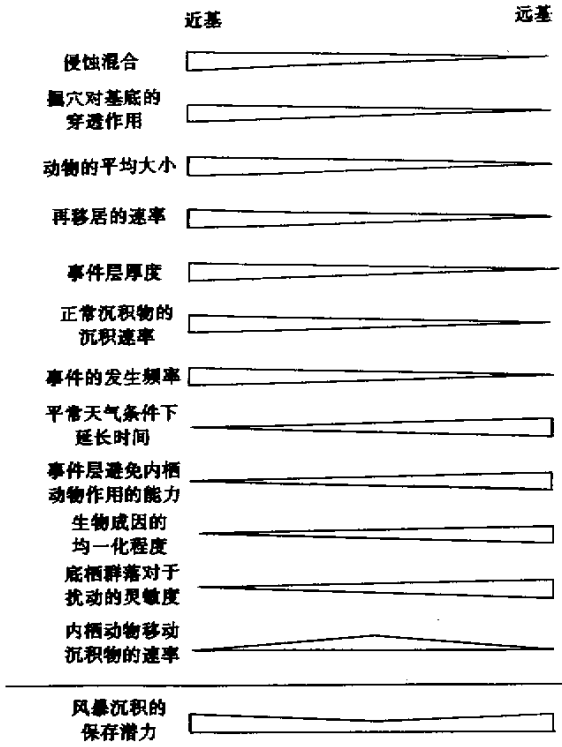 近基
远基
侵蚀混合
掘穴对基底的
穿透作用
动物的平均大小
再移居的速率
事件层厚度
正常沉积物的
沉积速率
事件的发生频率
平常天气条件下
延长时间
事件层避免内栖
动物作用的能力
生物成因的
均一化程度
底栖群落对于
扰动的灵敏度
内栖动物移动
沉积物的速率
风暴沉积的
保存潜力